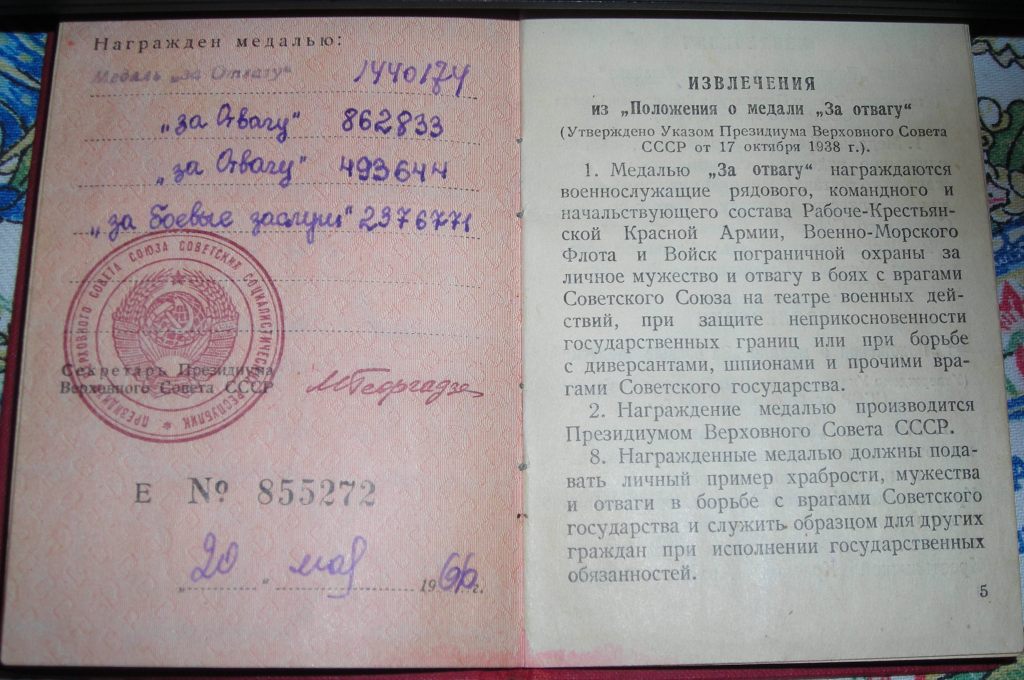 Награжден медалью:
Медаль „За Отвагу“ 1440174
„за Отвагу“ 862833
„за Отвагу“ 493644
„за боевые заслуги“ 2376771
ПРЕЗИДИУМ ВЕРХОВНОГО СОВЕТА СОЮЗА СОВЕТСКИХ СОЦИАЛИСТИЧЕСКИХ РЕСПУБЛИК
Секретарь Президиума
Верховного Совета СССР
МГеоргадзе
Е № 855272
„20“ мая 1966 г.
ИЗВЛЕЧЕНИЯ
из „Положения о медали „За отвагу“
(Утверждено Указом Президиума Верховного Совета
СССР от 17 октября 1938 г.).
1. Медалью „За отвагу“ награждаются
военнослужащие рядового, командного и
начальствующего состава Рабоче-Крестьян-
ской Красной Армии, Военно-Морского
Флота и Войск пограничной охраны за
личное мужество и отвагу в боях с врагами
Советского Союза на театре военных дей-
ствий, при защите неприкосновенности
государственных границ или при борьбе
с диверсантами, шпионами и прочими вра-
гами Советского государства.
2. Награждение медалью производится
Президиумом Верховного Совета СССР.
8. Награжденные медалью должны пода-
вать личный пример храбрости, мужества
и отваги в борьбе с врагами Советского
государства и служить образцом для других
граждан при исполнении государственных
обязанностей.
5